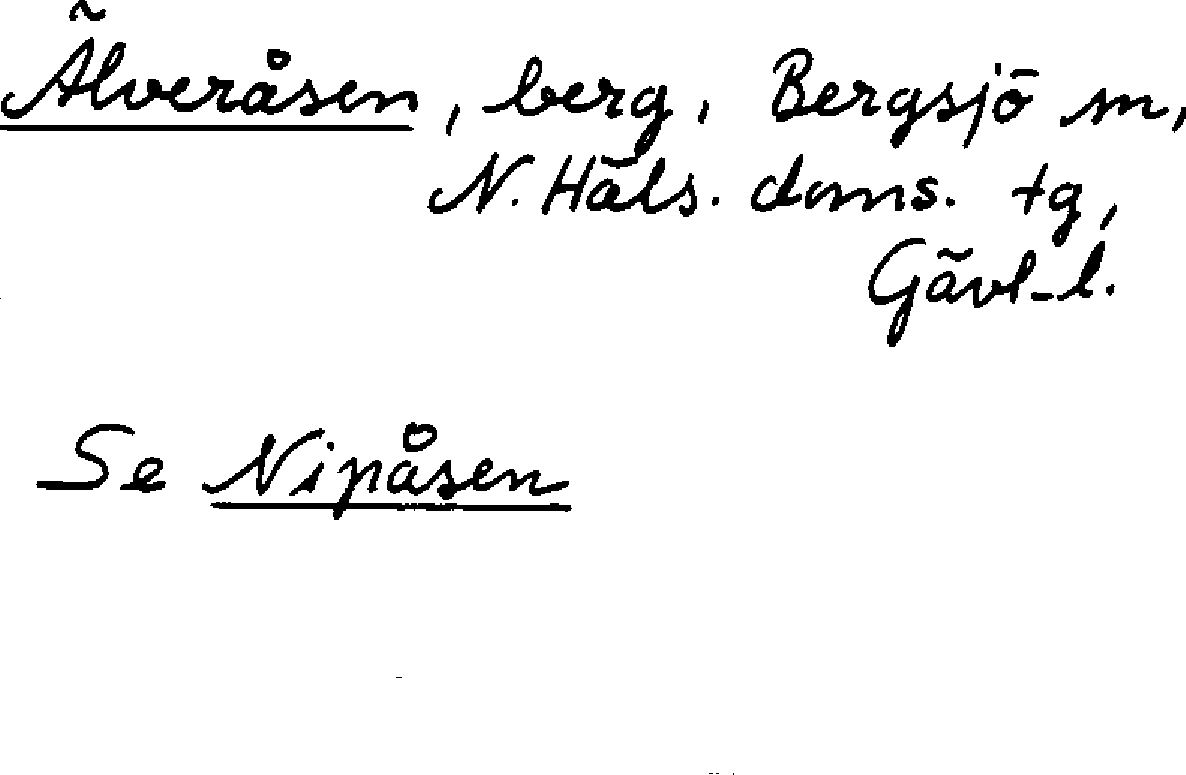 Älveråsen, berg, Bergsjö sn,
N. Häls. doms. tg,
Gävl-l.
Se Nipåsen